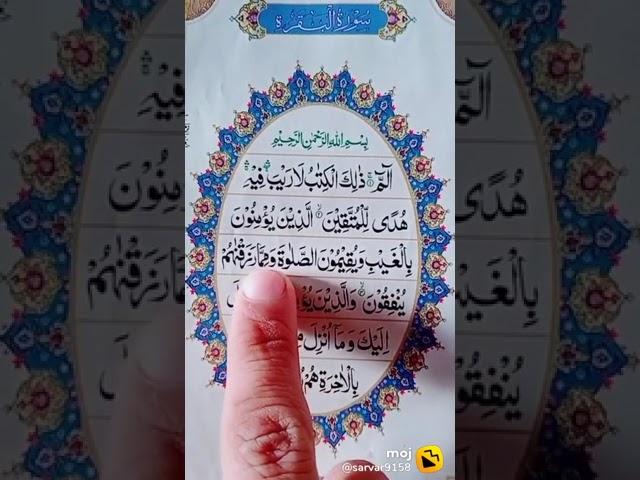 سورة البقرة
بسم الله الرحمن الرحيم
الٓمّٓ ذٰلِكَ الْكِتٰبُ لَا رَيْبَ فِيْهِ
هُدًى لِّلْمُتَّقِيْنَ الَّذِيْنَ يُؤْمِنُوْنَ
بِالْغَيْبِ وَيُقِيْمُوْنَ الصَّلٰوةَ وَمِمَّا رَزَقْنٰهُمْ
يُنْفِقُوْنَ وَالَّذِيْنَ
اِلَيْكَ وَمَآ اُنْزِلَ
بِالْاٰخِرَةِ هُمْ
moj
@sarvar9158